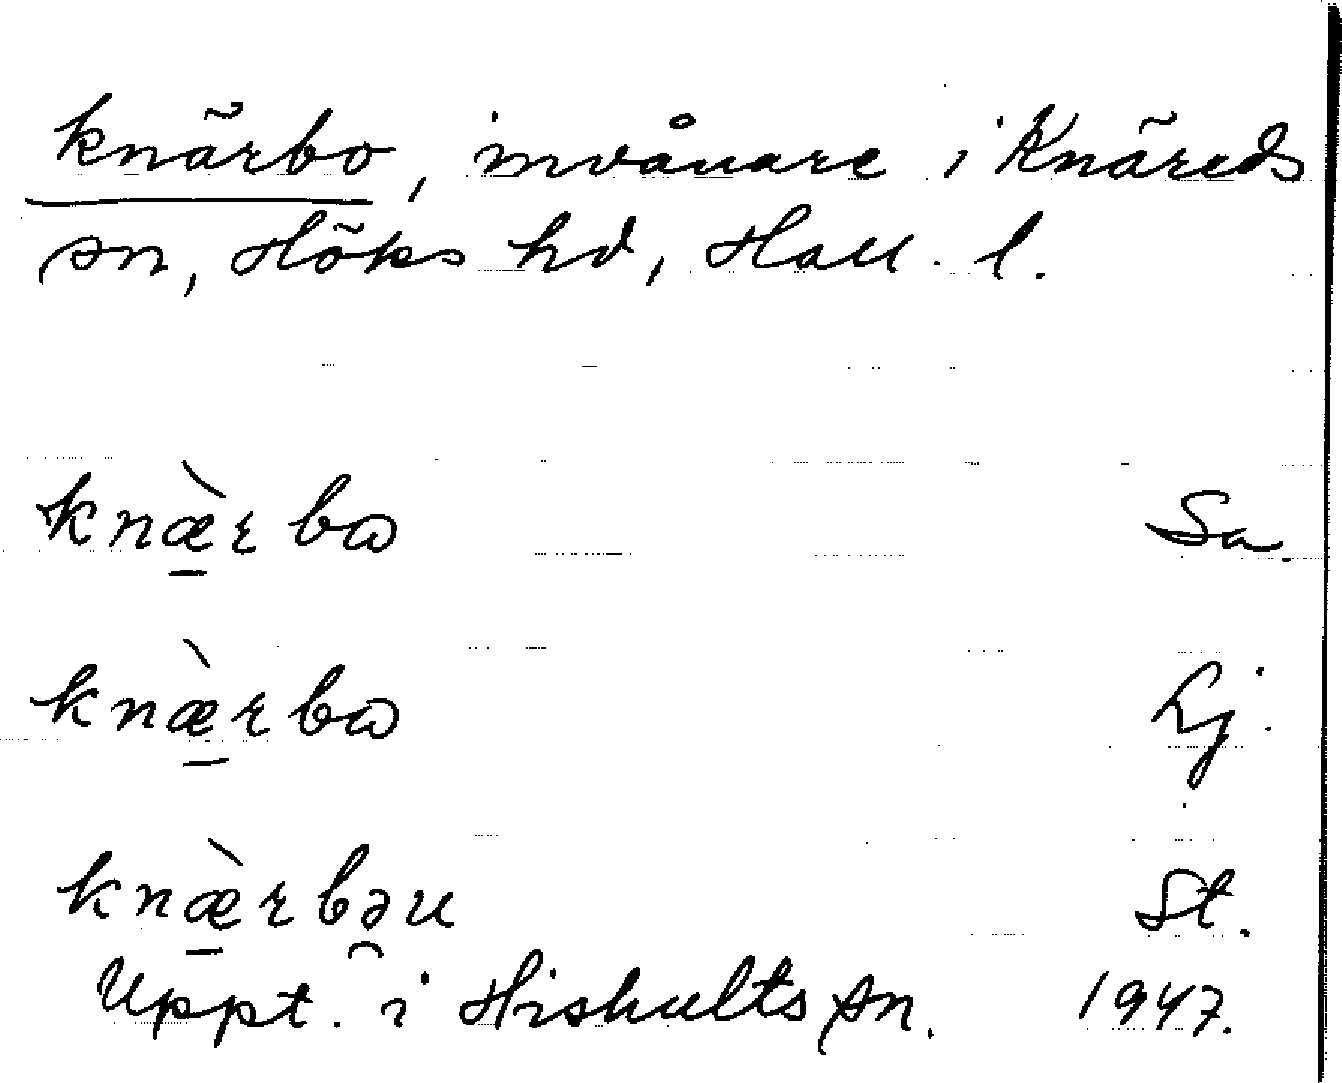 knärbo, invånare i Knäreds
sn, Höks hd, Hall. l.
knæ̱̀rbω Sa.
knæ̱̀rbω Lj.
knæ̱̀rbə̯u St.
Uppt. i Hishults sn. 1947.